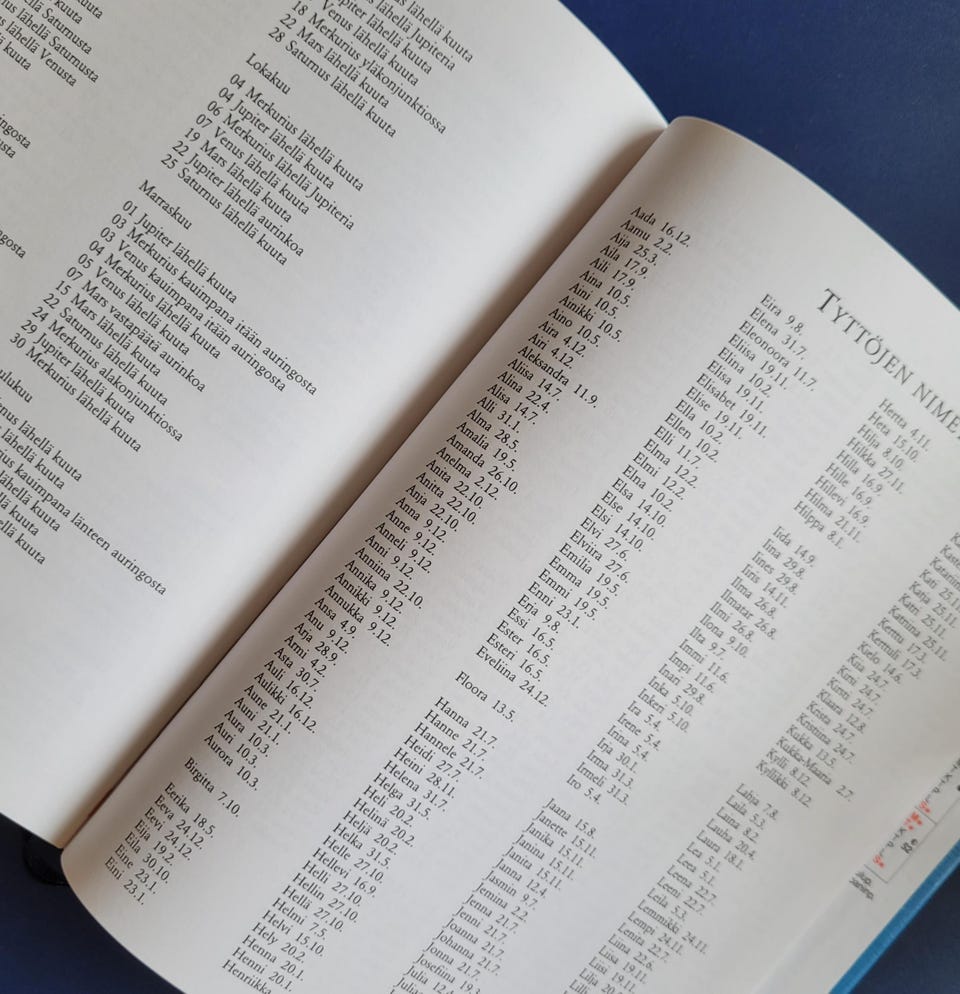 lähellä Saturnusta
lähellä Venusta
lähellä kuuta
18 Venus lähellä kuuta
22 Merkurius yläkonjunktiossa
22 Mars lähellä kuuta
28 Saturnus lähellä kuuta
Lokakuu
04 Merkurius lähellä kuuta
04 Jupiter lähellä kuuta
06 Merkurius lähellä Jupiteria
07 Venus lähellä kuuta
19 Mars lähellä kuuta
22 Jupiter lähellä aurinkoa
25 Saturnus lähellä kuuta
Marraskuu
01 Jupiter lähellä kuuta
03 Merkurius kauimpana itään auringosta
03 Venus kauimpana itään auringosta
04 Merkurius lähellä kuuta
05 Venus lähellä kuuta
07 Mars vastapäätä aurinkoa
15 Mars lähellä kuuta
22 Saturnus lähellä kuuta
24 Merkurius alakonjunktiossa
29 Jupiter lähellä kuuta
30 Merkurius lähellä kuuta
lähellä kuuta
lähellä kuuta
kauimpana länteen auringosta
lähellä kuuta
TYTTÖJEN
Aada 16.12.
Aamu 2.2.
Aija 25.3.
Aila 17.9.
Aili 17.9.
Aina 10.5.
Aini 10.5.
Ainikki 10.5.
Aino 10.5.
Aira 4.12.
Airi 4.12.
Aleksandra 11.9.
Aliisa 14.7.
Alina 22.4.
Alisa 14.7.
Alli 31.1.
Alma 28.5.
Amalia 19.5.
Amanda 26.10.
Anelma 2.12.
Anita 22.10.
Anitta 22.10.
Anja 22.10.
Anna 9.12.
Anne 9.12.
Anneli 9.12.
Anni 9.12.
Anniina 22.10.
Annika 9.12.
Annikki 9.12.
Annukka 9.12.
Ansa 4.9.
Anu 9.12.
Arja 28.9.
Armi 4.2.
Asta 30.7.
Auli 16.12.
Aulikki 16.12.
Aune 21.1.
Auni 21.1.
Aura 10.3.
Auri 10.3.
Aurora 10.3.
Birgitta 7.10.
Eerika 18.5.
Eeva 24.12.
Eevi 24.12.
Eija 19.2.
Eila 30.10.
Eine 23.1.
Eini 23.1.
Eira 9.8.
Elena 31.7.
Eleonoora 11.7.
Eliisa 19.11.
Elina 10.2.
Elisa 19.11.
Elisabet 19.11.
Elise 19.11.
Ella 10.2.
Ellen 10.2.
Elli 11.7.
Elma 12.2.
Elmi 12.2.
Elna 10.2.
Elsa 14.10.
Else 14.10.
Elsi 14.10.
Elvi 27.6.
Elviira 27.6.
Emilia 19.5.
Emma 19.5.
Emmi 19.5.
Enni 23.1.
Erja 9.8.
Essi 16.5.
Ester 16.5.
Esteri 16.5.
Eveliina 24.12.
Floora 13.5.
Hanna 21.7.
Hanne 21.7.
Hannele 21.7.
Heidi 27.7.
Heini 28.11.
Helena 31.7.
Helga 31.5.
Heli 20.2.
Helinä 20.2.
Heljä 20.2.
Helka 31.5.
Helle 27.10.
Hellevi 16.9.
Helli 27.10.
Hellin 27.10.
Hellä 27.10.
Helmi 7.5.
Helvi 15.10.
Hely 20.2.
Henna 20.1.
Henni 20.1.
Henriikka
Hertta 4.11.
Heta 15.10.
Hilja 8.10.
Hilkka 27.11.
Hilla 16.9.
Hille 16.9.
Hillevi 16.9.
Hilma 21.11.
Hilppa 8.1.
Iida 14.9.
Iina 29.8.
Iines 29.8.
Iiris 14.11.
Ilma 26.8.
Ilmatar 26.8.
Ilona 9.10.
Ilta 9.7.
Immi 11.6.
Impi 11.6.
Inari 29.8.
Inka 5.10.
Inkeri 5.10.
Ira 5.4.
Irene 5.4.
Irina 5.4.
Irja 30.1.
Irma 31.3.
Irmeli 31.3.
Iro 5.4.
Jaana 15.8.
Janette 15.11.
Janika 15.11.
Janina 15.11.
Janita 15.11.
Janna 12.4.
Jasmin 9.7.
Jemina 2.2.
Jenna 21.7.
Jenni 21.7.
Joanna 21.7.
Johanna 21.7.
Jonna 21.7.
Josefiina 19.3.
Julia 12.4.
Katariina 25.11.
Kati 25.11.
Katri 25.11.
Katriina 25.11.
Kerttu 17.3.
Kerttuli 17.3.
Kielo 14.6.
Kiia 24.7.
Kirsi 24.7.
Kirsti 24.7.
Klaara 12.8.
Krista 24.7.
Kristiina 24.7.
Kukka 13.5.
Kukka-Maaria 2.7.
Kylli 8.12.
Kyllikki 8.12.
Lahja 7.8.
Laila 5.3.
Laina 8.2.
Lauha 20.4.
Laura 18.1.
Lea 5.1.
Leea 5.1.
Leena 22.7.
Leeni 22.7.
Leila 5.3.
Lemmikki 24.11.
Lempi 24.11.
Lenita 22.7.
Liina 22.6.
Liisa 19.11.
Liisi 19.11.